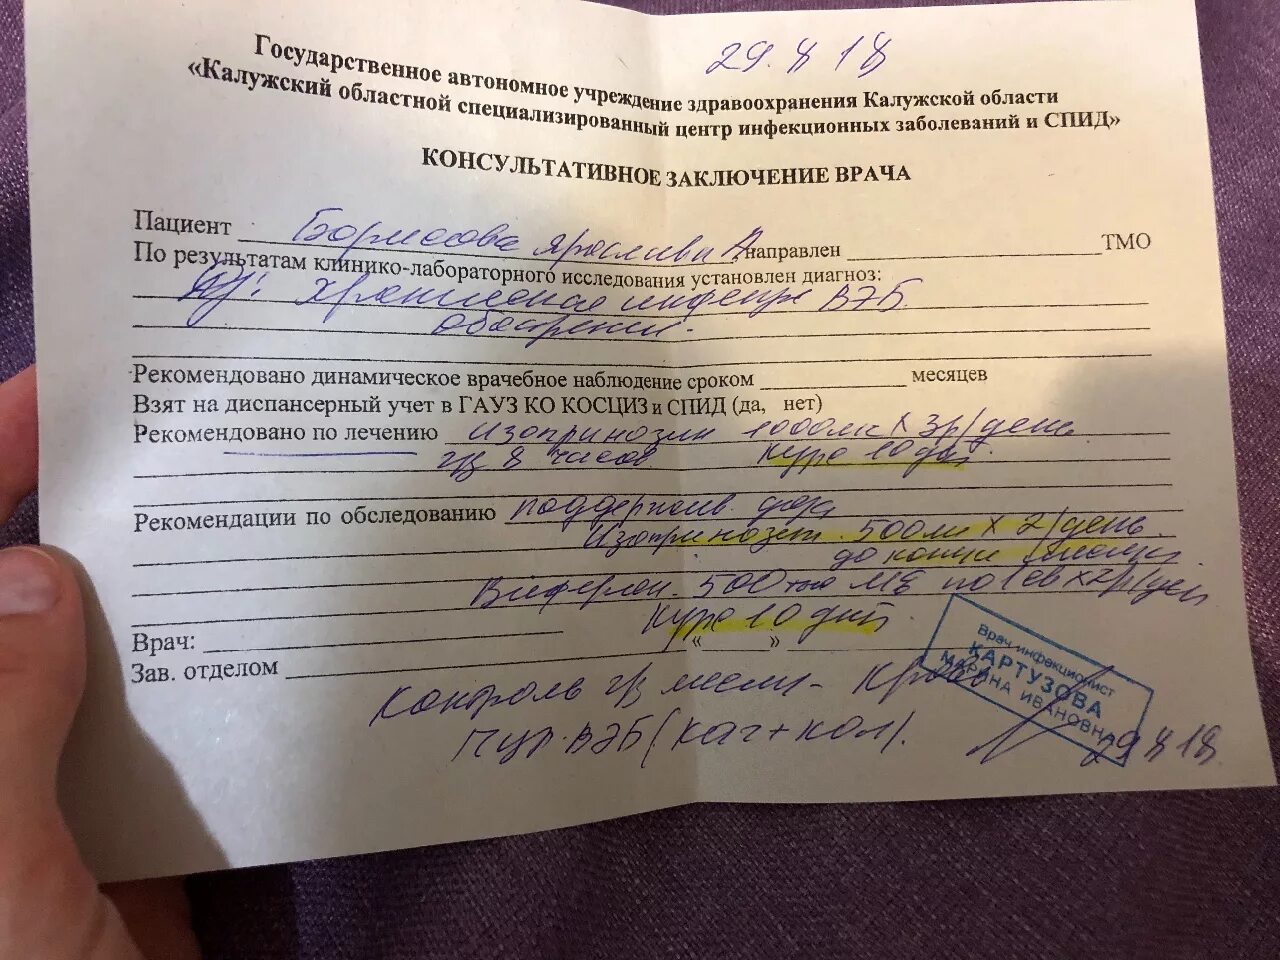 29. 18
Государственное автономное учреждение здравоохранения Калужской области
«Калужский областной специализированный центр инфекционных заболеваний и СПИД»
КОНСУЛЬТАТИВНОЕ ЗАКЛЮЧЕНИЕ ВРАЧА
Пациент Борисова Ярослава А. направлен ТМО
По результатам клинико-лабораторного исследования установлен диагноз:
Ds: Хроническая инфекция ВЭБ
обострение.
Рекомендовано динамическое врачебное наблюдение сроком месяцев
Взят на диспансерный учет в ГАУЗ КО КОСЦИЗ и СПИД (да, нет)
Рекомендовано по лечению Изопринозин 1000мг х 3р/день
ч/з 8 часов курс 10 дн.
Рекомендации по обследованию поддержив. доза
Изопринозин 500мг х 2/день
до конца месяца
Виферон 500 тыс МЕ по 1 св х 2р/день
курс 10 дней.
Врач: « »
Зав. отделом
Контроль ч/з месяц - кровь
ПЦР ВЭБ (кач+кол).
Врач инфекционист
КАРТУЗОВА
МАРИНА ИВАНОВНА
29 18